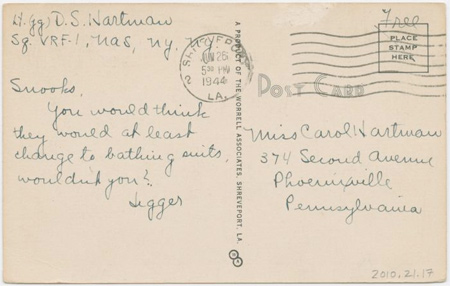 Lt. (jg) D. S. Hartman
Sq. VRF-1, NAS, NY, NY.
Snooks,
You would think
they would at least
change to bathing suits,
wouldn't you?
Jigger
A PRODUCT OF THE WORRELL ASSOCIATES, SHREVEPORT, LA.
2
5 PM
1944
LA.
Free
PLACE
STAMP
HERE
POST CARD
Miss Carol Hartman
374 Second Avenue
Phoenixville
Pennsylvania
2010.21.17